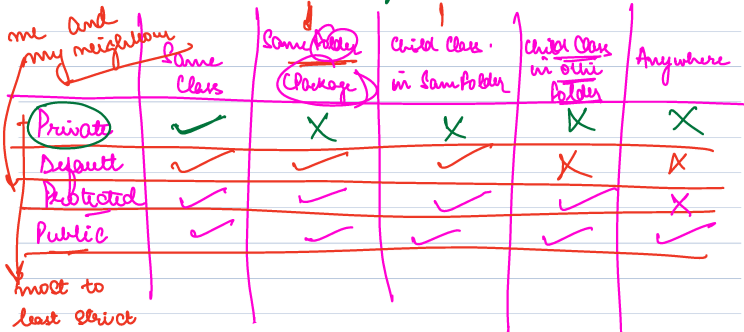 me and
my neighbour
Same
Class
Same folder
(Package)
Child Class.
in Sam folder
Child Class
in othe
folder
Anywhere
Private ✓ X X X X
Default ✓ ✓ ✓ X X
Protected ✓ ✓ ✓ ✓ X
Public ✓ ✓ ✓ ✓ ✓
most to
least strict